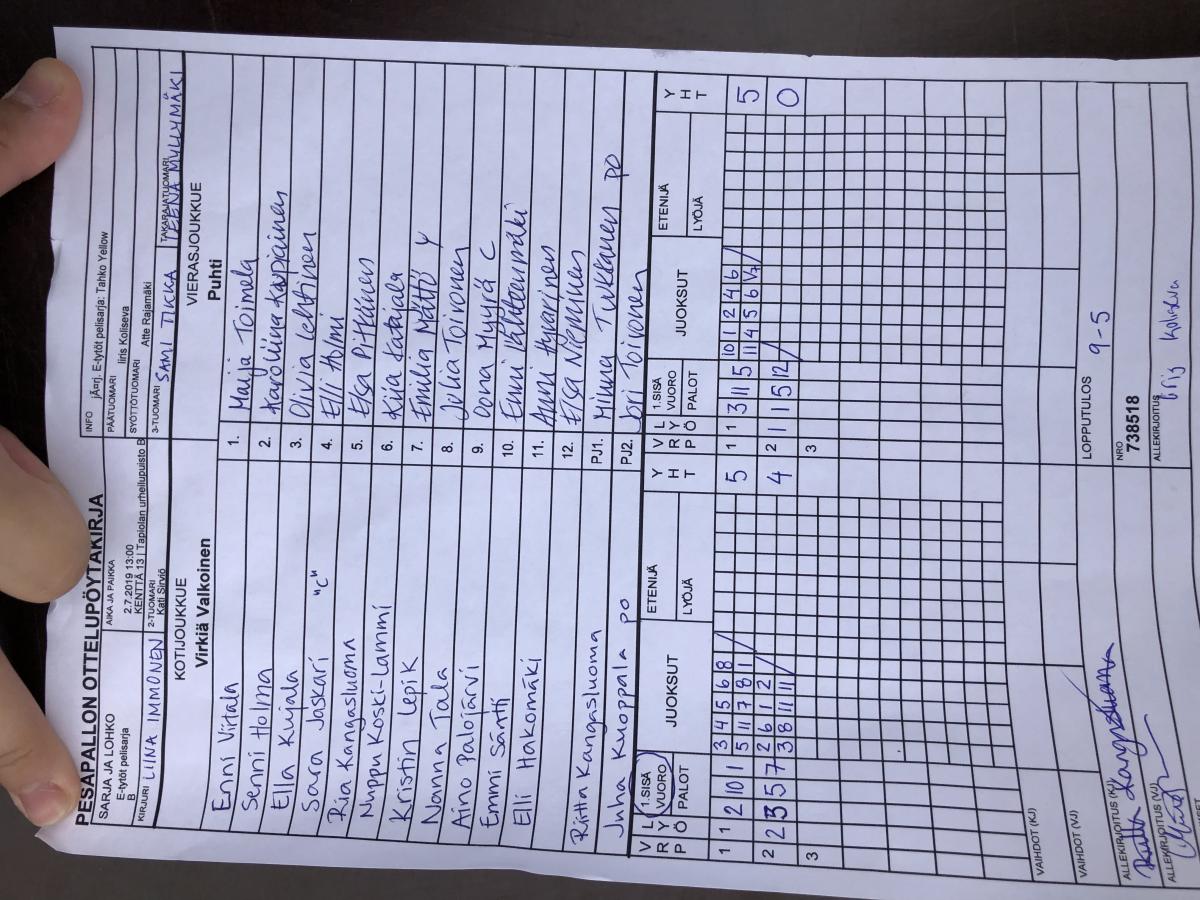 PESÄPALLON OTTELUPÖYTÄKIRJA
SARJA JA LOHKO
E-tytöt pelisarja
B
AIKA JA PAIKKA
2.7.2019 13:00
KENTTÄ 13 | Tapiolan urheilupuisto B
INFO
jÄrj. E-tytöt pelisarja: Tahko Yellow
PÄÄTUOMARI
Iiris Koliseva
SYÖTTÖTUOMARI
Atte Rajamäki
KIRJURI LIINA IMMONEN
2-TUOMARI
Kati Sirviö
3-TUOMARI
SAMI TIKKA
TAKARAJATUOMARI
TEENA MYLLYMÄKI
KOTIJOUKKUE
Virkiä Valkoinen
VIERASJOUKKUE
Puhti
Enni Viitala 1. Maija Toimela
Senni Holma 2. Karoliina Karpiainen
Ella Kujala 3. Olivia Lehtinen
Sara Jaskari "C" 4. Elli Holmi
Ria Kangasluoma 5. Elsa Pitkänen
Nuppu Koski-Lammi 6. Kiia Katajala
Kristin Lepik 7. Emilia Mättö Y
Nanna Tala 8. Julia Toivonen
Aino Palojärvi 9. Oona Myyrä C
Emmi Säntti 10. Enni Kähteenmäki
Elli Hakomäki 11. Anni Hyvärinen
12. Elsa Nieminen
Riitta Kangasluoma PJ1. Minna Tukkanen PO
Juha Kuoppala PO PJ2. Jori Toivonen
V R Ö L Y P 1.SISÄ VUORO PALOT JUOKSUT ETENIJÄ LYÖJÄ Y H T
V R Ö L Y P 1.SISÄ VUORO PALOT JUOKSUT ETENIJÄ LYÖJÄ Y H T
1 1 2 10 1 3 4 5 6 8 5 1 1 3 11 5 10 1 2 4 6 5
5 11 7 8 1 11 4 5 6 1/7
2 2 3 5 7 2 6 1 2 4 2 1 1 5 12 0
3 8 11 11
3 3
VAIHDOT (KJ)
VAIHDOT (VJ)
LOPPUTULOS 9-5
ALLEKIRJOITUS (KJ)
Riitta Kangasluoma
NRO
738518
ALLEKIRJOITUS (VJ)
ALLEKIRJOITUS
Iiris Koliseva